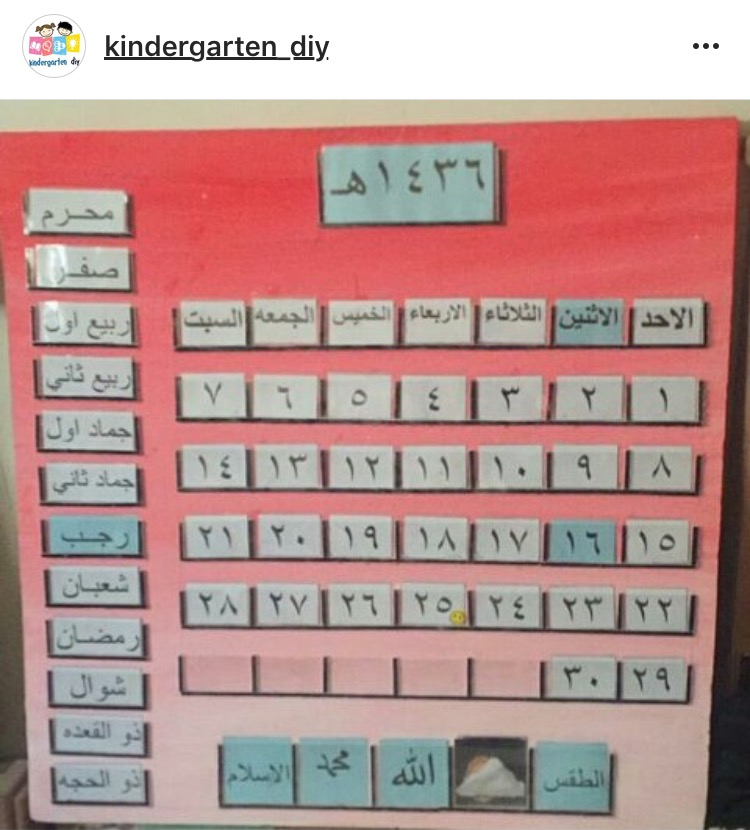 kindergarten_diy
kindergarten diy
١٤٣٦هـ
محرم
صفر
ربيع اول
ربيع ثاني
جماد اول
جماد ثاني
رجب
شعبان
رمضان
شوال
ذو القعده
ذو الحجه
الاحد الاثنين الثلاثاء الاربعاء الخميس الجمعه السبت
١ ٢ ٣ ٤ ٥ ٦ ٧
٨ ٩ ١٠ ١١ ١٢ ١٣ ١٤
١٥ ١٦ ١٧ ١٨ ١٩ ٢٠ ٢١
٢٢ ٢٣ ٢٤ ٢٥ ٢٦ ٢٧ ٢٨
٢٩ ٣٠
الطقس الله محمد الاسلام